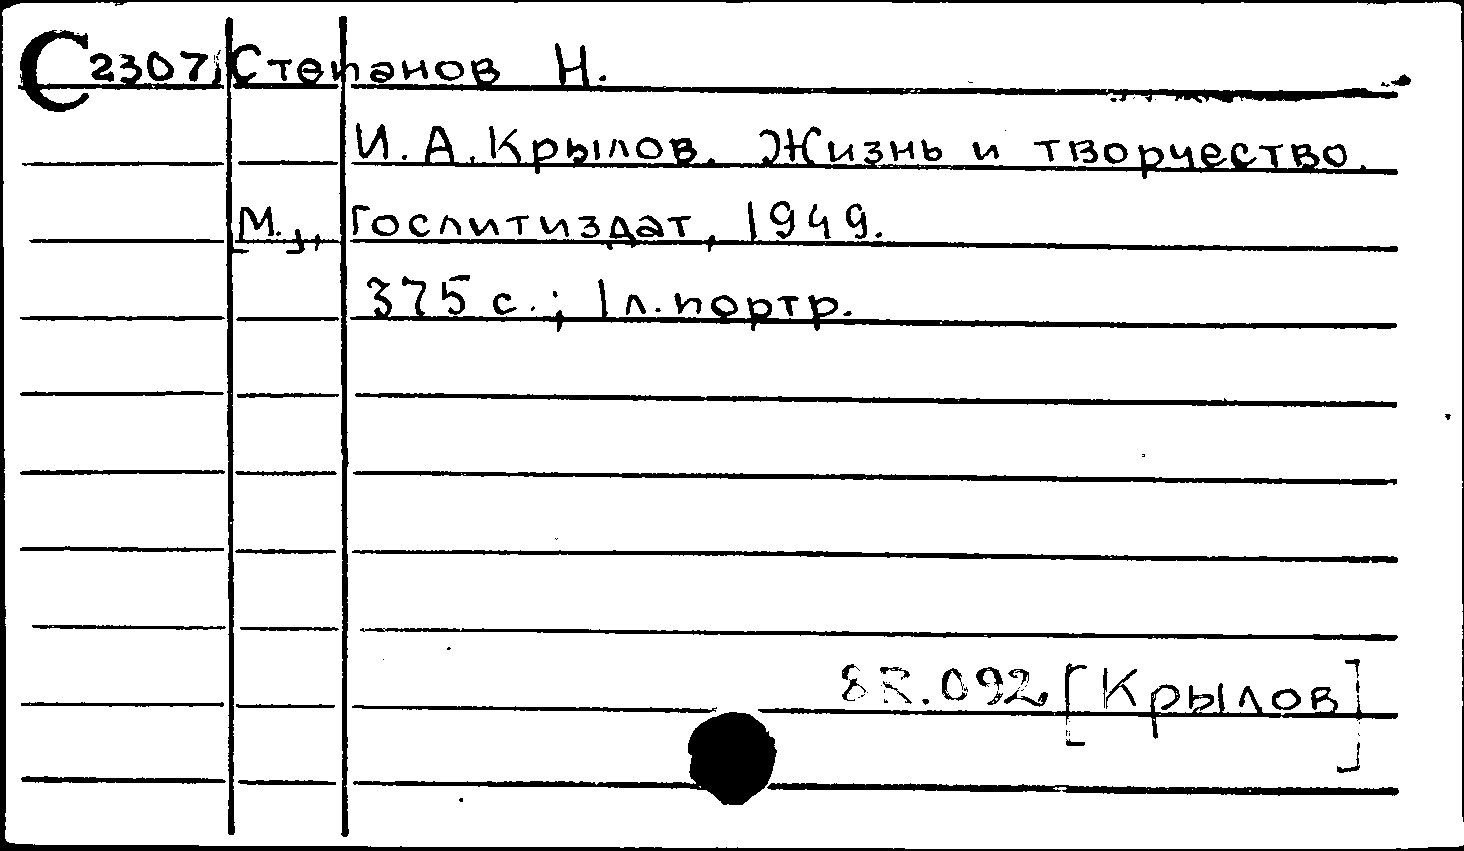 C 2307 Степанов Н.
И.А. Крылов. Жизнь и творчество.
[М.], Гослитиздат, 1949.
375 с.; 1 л. портр.
8R.092 [Крылов]